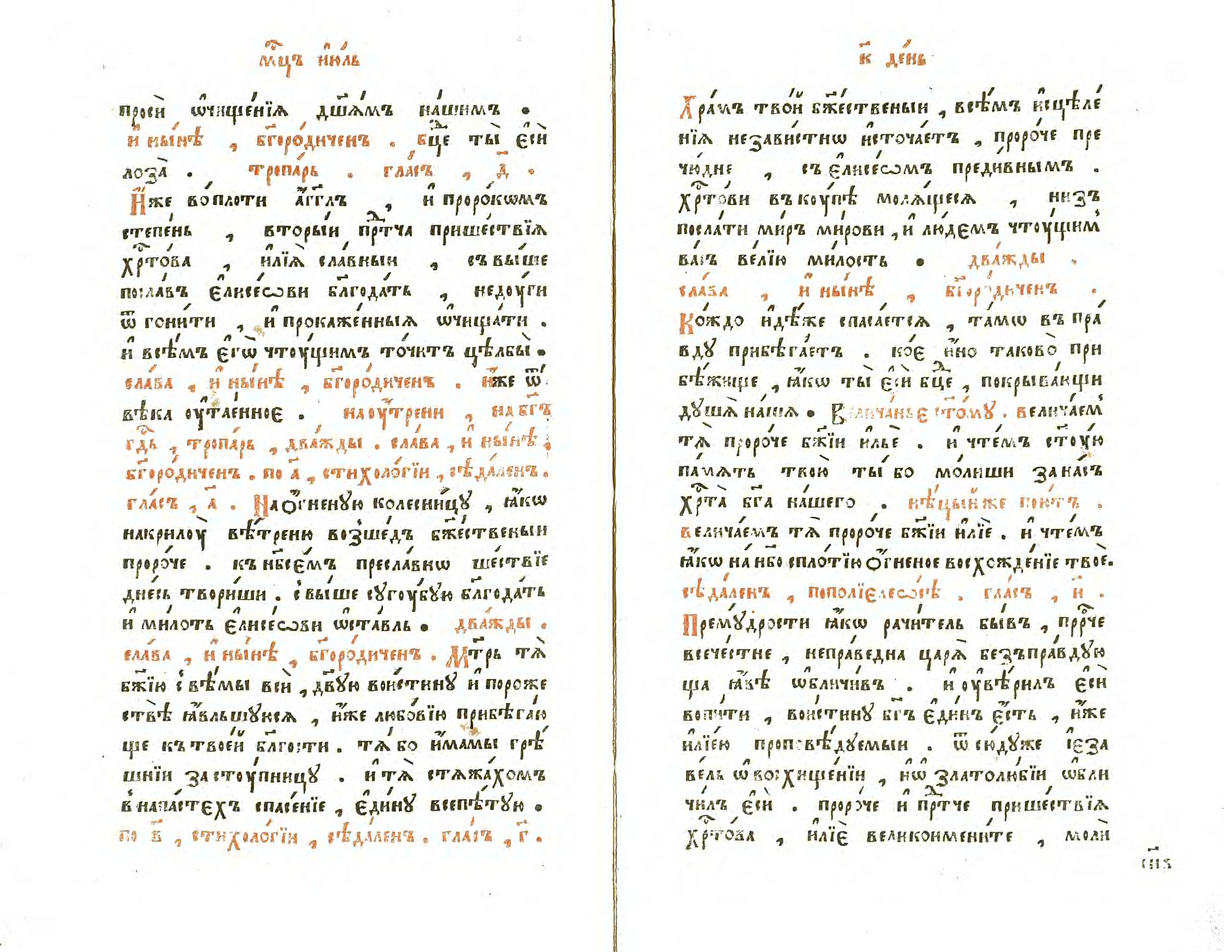 мц҃ъ ию́ль
проси̑ ѡ҆чище́нїѧ дш҃а́мъ на́шимъ .
и҆ ны́нѣ , бг҃оро́диченъ . бц҃е ты̀ є҆сѝ
лоза̀ . тропа́рь . гла́съ , д҃ .
И҆́же во пло́ти а҆́гг҃лъ , и҆ проро́кѡмъ
степе́нь , вторы́и прⷣт҃ча прише́ствїѧ
хрⷭ҇то́ва , и҆лїѧ̀ сла́вныи , съ вы́ше
посла́въ є҆лисе́ѡви блг҃ода́ть , неду́ги
ѿ гони́ти , и҆ прокаже́нныѧ ѡ҆чища́ти .
и҆ всѣ́мъ є҆гѡ̀ чтоу́щимъ то́читъ цѣлбы̀ .
сла́ва , и҆ ны́нѣ , бг҃оро́диченъ . и҆́же ѿ
вѣ́ка оу҆та́енное . на оу҆́трени , на бг҃ъ
гдⷭ҇ь , тропа́рь , два́жды . сла́ва , и҆ ны́нѣ ,
бг҃оро́диченъ . по а҃ , стихоло́гїи , сѣда́ленъ .
гла́съ , а҃ . На ѻ҆́гненую колесни́цу , ꙗ҆́кѡ
на крилоу̀ вѣ́треню возше́дъ бж҃е́ственыи
проро́че . къ нбⷭ҇е́мъ пресла́внѡ ше́ствїе
дне́сь твори́ши . свы́ше сугоу́бую блг҃ода́ть
и҆ ми́лоть є҆лисе́ѡви ѡ҆ста́вль . два́жды .
сла́ва , и҆ ны́нѣ , бг҃оро́диченъ . Мт҃рь тѧ̀
бж҃їю свѣ́мы всѝ , дв҃ую вои́стину и҆ по роже
ствѣ̀ ꙗ҆́вльшуюсѧ , и҆́же любо́вїю прибѣга́ю
ще къ твое́й блг҃ости . тѧ̀ бо и҆́мамы грѣ́
шнїи засту́пницу . и҆ тѧ̀ стѧжа́хомъ
в напа́стехъ спасе́нїе , є҆ди́ну всепѣ́тую .
по в҃ , стихоло́гїи , сѣда́ленъ . гла́съ , г҃ .
к҃ де́нь
Хра́мъ тво́й бж҃е́ственыи , всѣ́мъ и҆сцѣле́
нїѧ неза́вистнѡ и҆сточа́етъ , проро́че пре
чю́дне , съ є҆лисе́ѡмъ преди́внымъ .
хрⷭ҇то́ви вкоу́пѣ молѧ́щесѧ , низ
посла́ти ми́ръ ми́рови , и҆ лю́демъ чтоу́щим
ва́съ ве́лїю ми́лость . два́жды .
сла́ва , и҆ ны́нѣ , бг҃оро́диченъ .
Ко́ждо и҆дѣ́же спаса́етсѧ , та́мѡ въ пра́
вду прибѣга́етъ . ко́е и҆́но таково̀ при
бѣ́жище , ꙗ҆́кѡ ты̀ є҆сѝ бц҃е , покрыва́ющи
ду́шѧ на́шѧ . Велича́нье ст҃о́му . велича́ем
тѧ̀ проро́че бж҃їи и҆льѐ . и҆ чте́мъ ст҃оу́ю
па́мѧть твою̀ ты́ бо мо́лиши за на́съ
хрⷭ҇та̀ бг҃а на́шего . нѣ́цыи́же пою́тъ .
велича́емъ тѧ̀ проро́че бж҃їи и҆лїѐ . и҆ чте́мъ
ꙗ҆́кѡ на нб҃о с пло́тїю ѻ҆́гненое восхожде́нїе твоѐ .
сѣда́ленъ , по полїелео́сѣ . гла́съ , и҃ .
Прему́дрости ꙗ҆́кѡ рачи́тель бы́въ , прⷪ҇ро́че
всече́стне , непра́ведна царѧ̀ безъпра́вдую
ща ꙗ҆́вѣ ѡ҆бличи́въ . и҆ оу҆вѣ́рилъ є҆сѝ
вопи́ти , вои́стину бг҃ъ є҆ди́нъ є҆́сть , и҆́же
и҆лїе́ю проповѣ́дуемыи . ѿ сю́дуже і҆еза
ве́ль ѡ҆ восхище́нїи , и҆ ѡ҆ златолю́бїи ѡ҆бли
чи́лъ є҆сѝ . проро́че и҆ прⷣт҃че прише́ствїѧ
хрⷭ҇то́ва , и҆лїѐ великоимени́те , молѝ